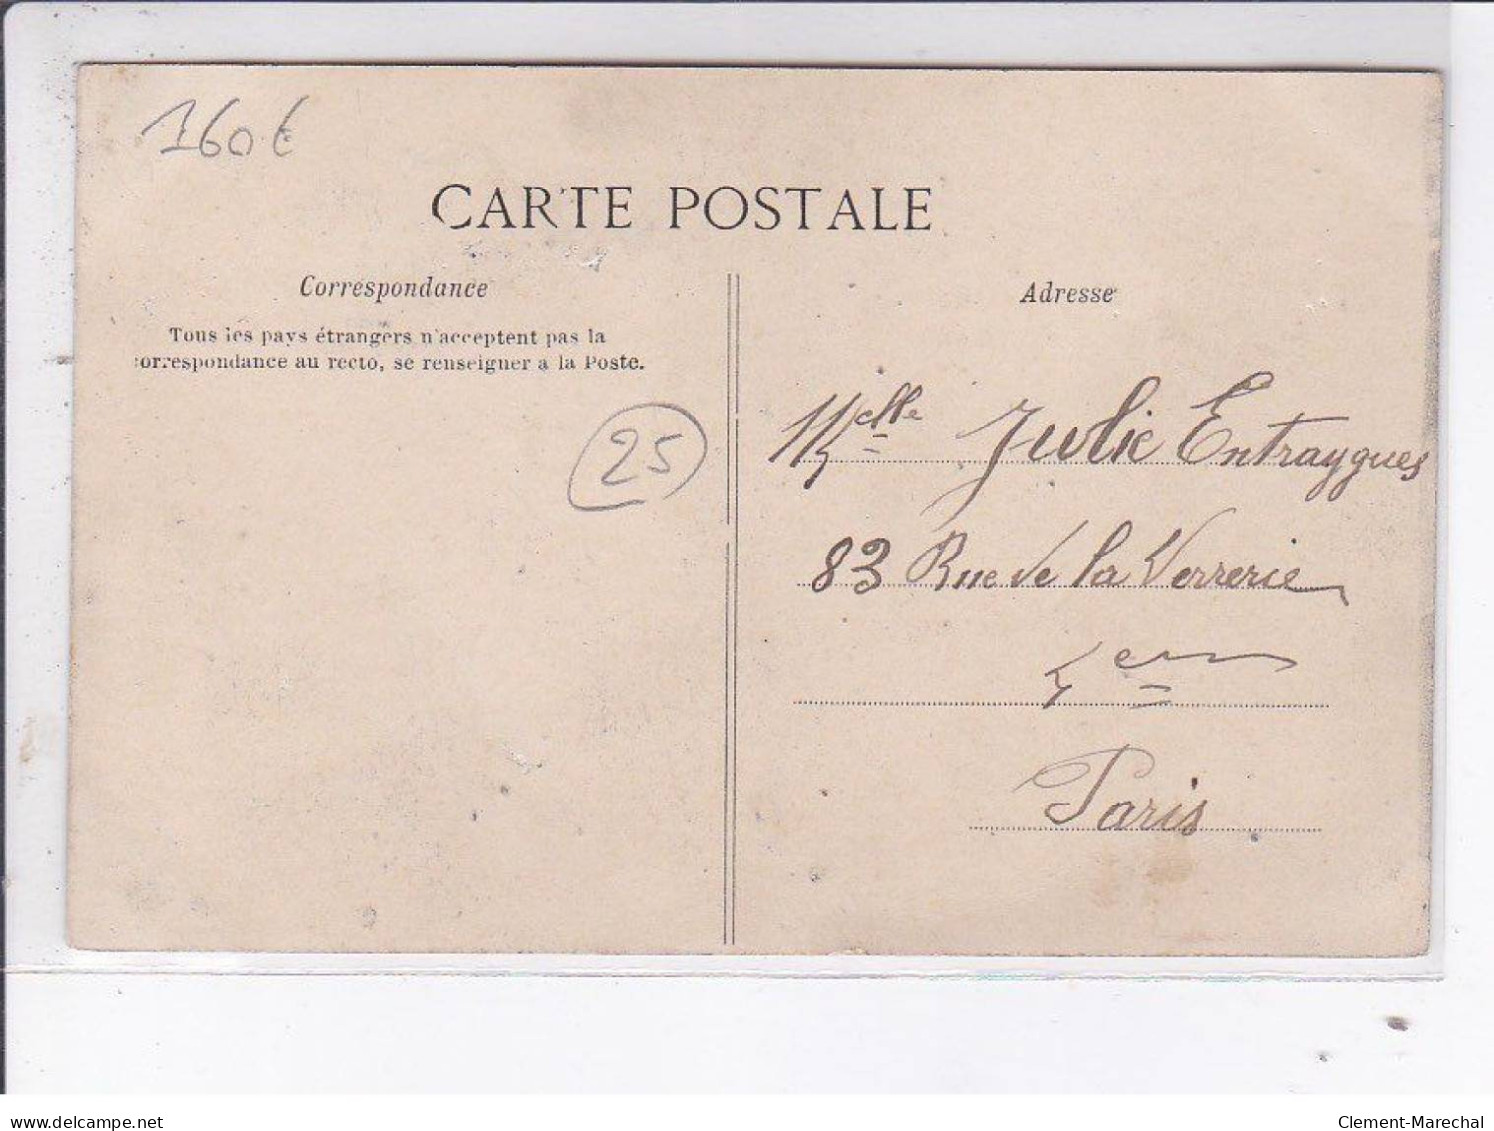 160€
CARTE POSTALE
Correspondance
Tous les pays étrangers n'acceptent pas la
correspondance au recto, se renseigner à la Poste.
25
Adresse
Melle Julie Entraygues
83 Rue de la Verrerie
4em
Paris
delcampe.net
Clement-Marechal